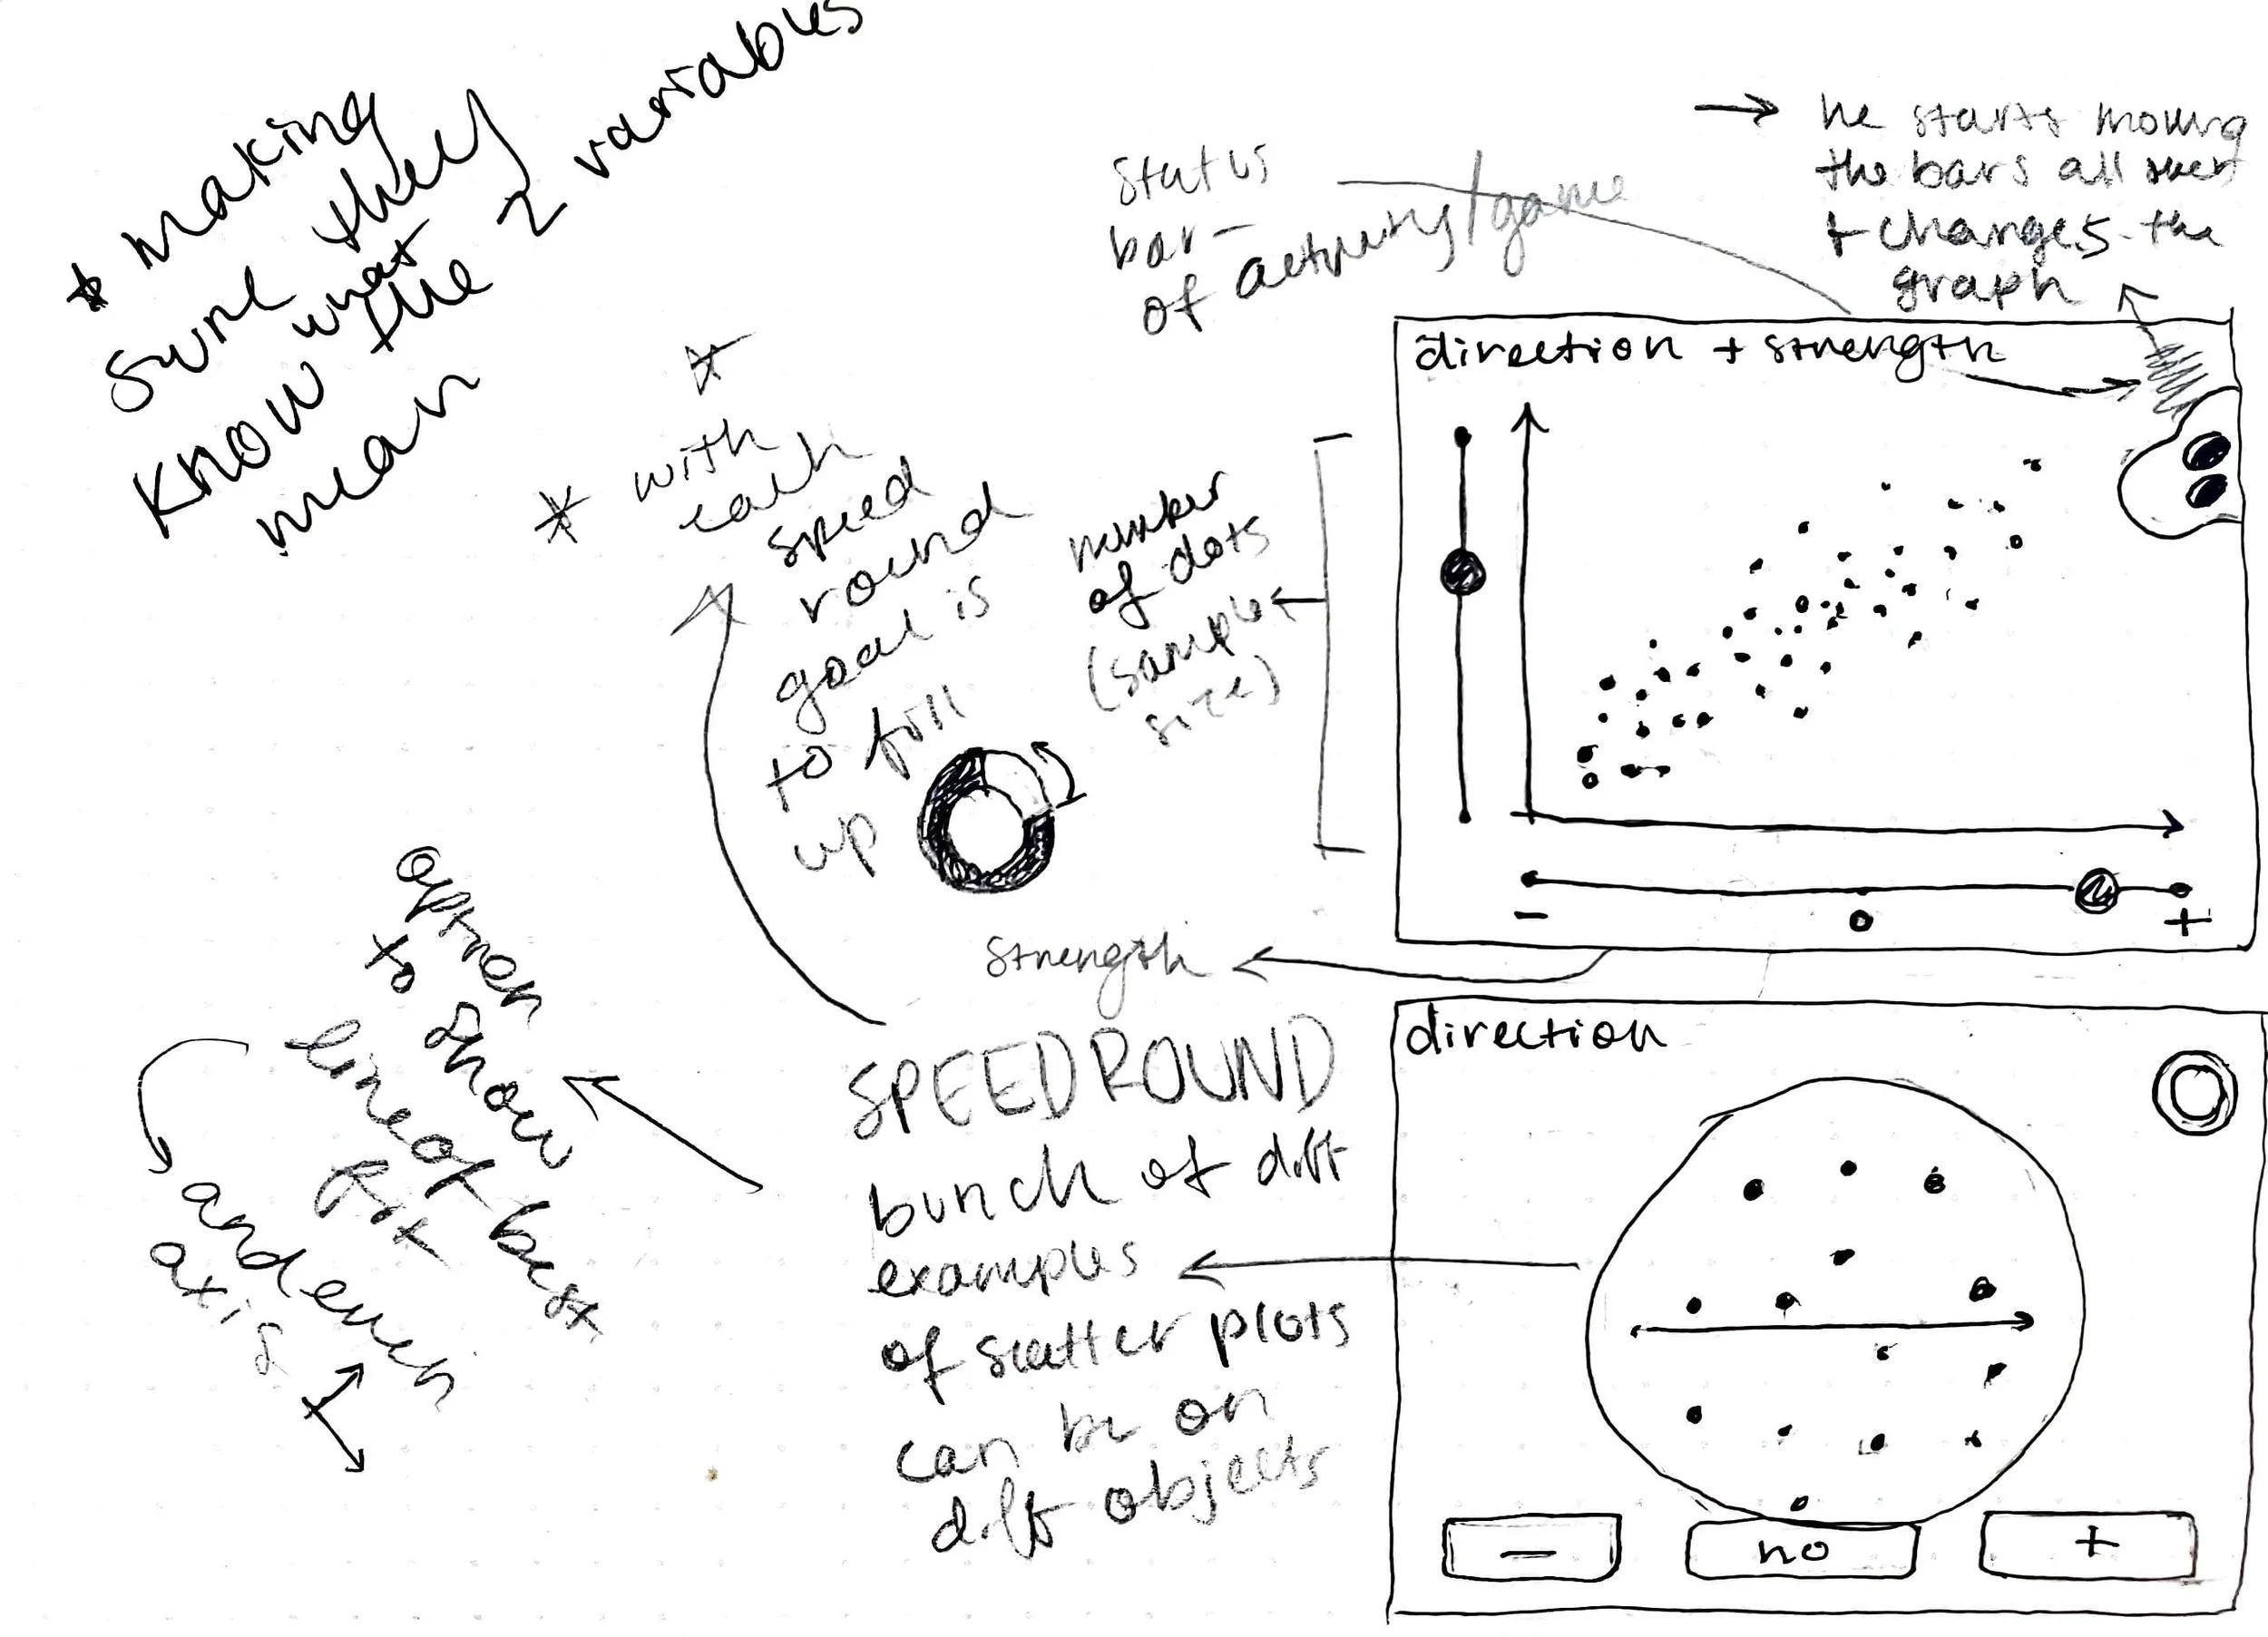 * making
sure they
know what
the 2 variables
mean
status
bar -
of activity/game
→ he starts moving
the bars all over
+ changes the
graph
direction + strength
*
* with
each
speed
round
goal is
to fill
up
number
of dots
(sample
size)
- o +
strength
option
to show
line of best
fit
and even
axis
SPEED ROUND
bunch of diff
examples
of scatter plots
can be on
diff objects
direction
- no +